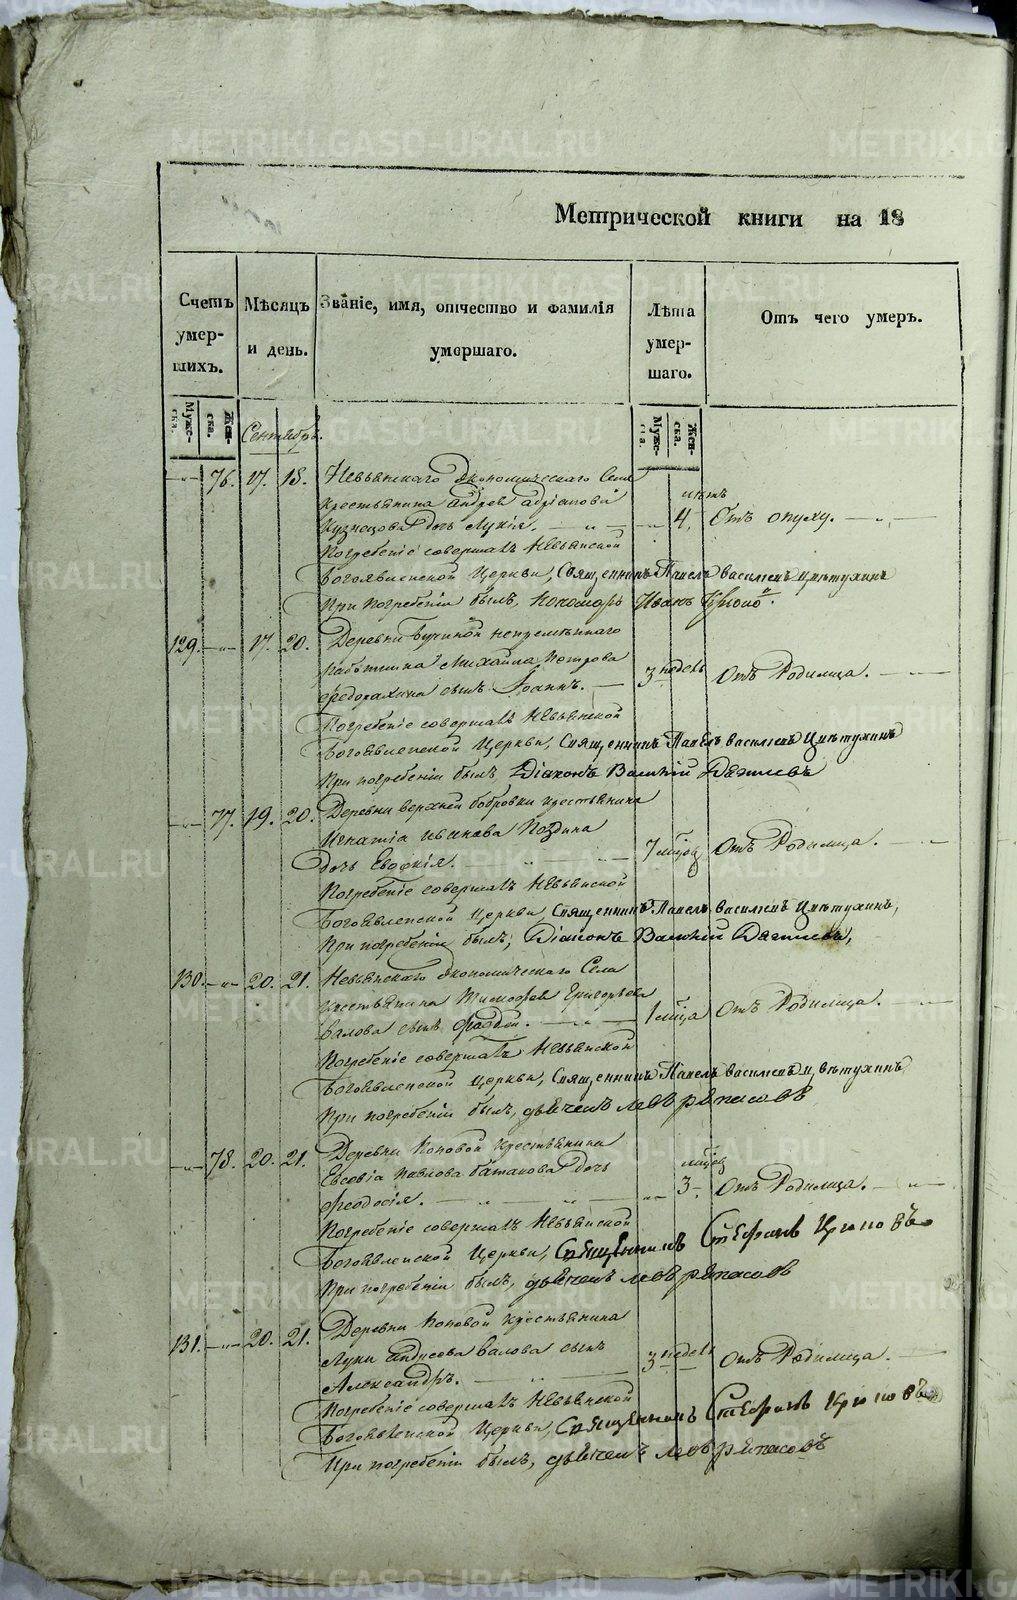 Метрической книги на 18
Счетъ умер- шихъ.
Мѣсяцъ и день.
Званіе, имя, отчество и фамилія умершаго.
Лѣта умер- шаго.
Отъ чего умеръ.
Муже- ска. Жен- ска.
Муже- ска. Жен- ска.
Сентябрь.
76. 17. 18. Невьянскаго Экономическаго Села
крестьянина Андрея Адріанова
лѣтъ
Кузнецова дочь Лукія. 4. Отъ опуху.
Погребеніе совершалъ Невьянской
Богоявленской Церкви, Священникъ Павелъ Васильевъ Цвѣтухинъ
При погребеніи былъ, пономарь Иванъ
129. 17. 20. Деревни непремѣннаго
работника Михайла Петрова
сынъ Іоаннъ. 3 недель Отъ Родимца.
Погребеніе совершалъ Невьянской
Богоявленской Церкви, Священникъ Павелъ Васильевъ Цвѣтухинъ
При погребеніи былъ, Діаконъ Василій Дягилевъ
77. 19. 20. Деревни верхней бобровки крестьянина
Игнатія Иванова
дочь Евдокія. 7 мѣсяц Отъ Родимца.
Погребеніе совершалъ Невьянской
Богоявленской Церкви, Священникъ Павелъ Васильевъ Цвѣтухинъ,
При погребеніи былъ, Діаконъ Василій Дягилевъ,
130. 20. 21. Невьянскаго Экономическаго Села
крестьянина Тимофея Григорьева
Валова сынъ Фаддей. 1 мѣсяца Отъ Родимца.
Погребеніе совершалъ Невьянской
Богоявленской Церкви, Священникъ Павелъ Васильевъ Цвѣтухинъ
При погребеніи былъ, дьячекъ Левъ Ряпасовъ
78. 20. 21. Деревни Поповой крестьянина
Евсевія Павлова дочь
мѣсяц
Феодосія. 3 Отъ Родимца.
Погребеніе совершалъ Невьянской
Богоявленской Церкви, Священникъ Стефанъ Крюковъ
При погребеніи былъ, дьячекъ Левъ Ряпасовъ
131. 20. 21. Деревни Поповой крестьянина
Луки Андреева Валова сынъ
Александръ. 3 недель Отъ Родимца.
Погребеніе совершалъ Невьянской
Богоявленской Церкви, Священникъ Стефанъ Крюковъ
При погребеніи былъ, дьячекъ Левъ Ряпасовъ
METRIKI.GASO-URAL.RU